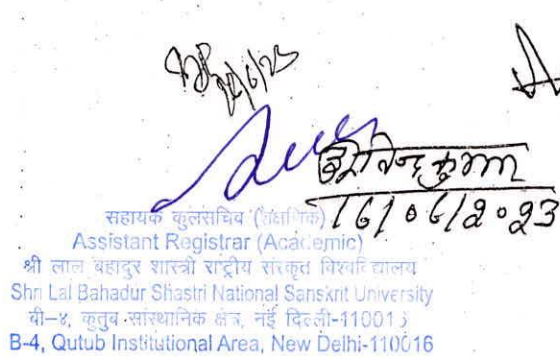 16/6/23
16/06/2023
सहायक कुलसचिव (शैक्षणिक)
Assistant Registrar (Academic)
श्री लाल बहादुर शास्त्री राष्ट्रीय संस्कृत विश्वविद्यालय
Shri Lal Bahadur Shastri National Sanskrit University
बी-४, कुतुब सांस्थानिक क्षेत्र, नई दिल्ली-110016
B-4, Qutub Institutional Area, New Delhi-110016